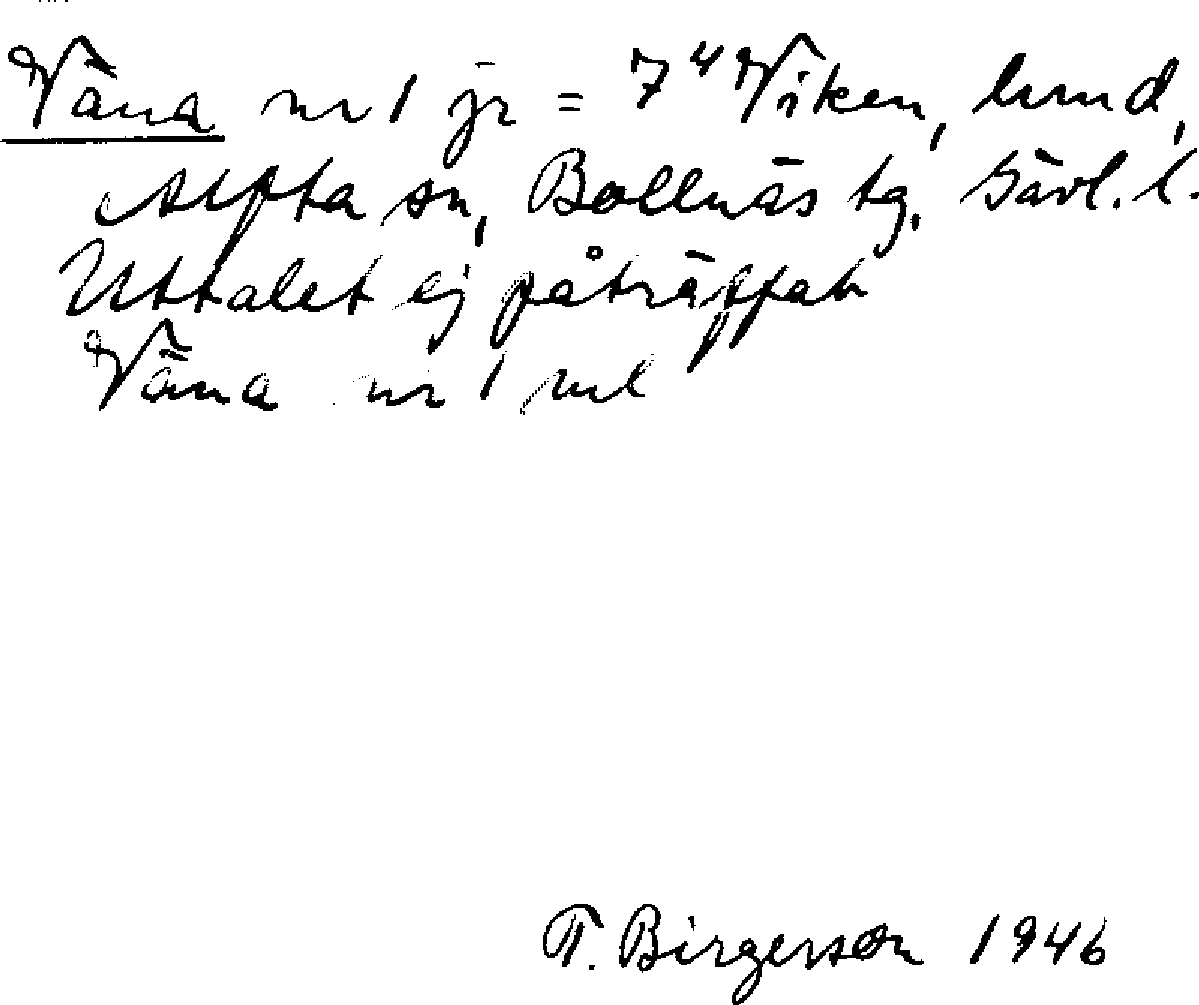 Väna nr 1 jr = 7⁴ Viken, hmd,
Alfta sn, Bollnäs tg, Gävl. l.
Uttalet ej påträffat
Väna nr 1 ml
T. Birgersson 1946